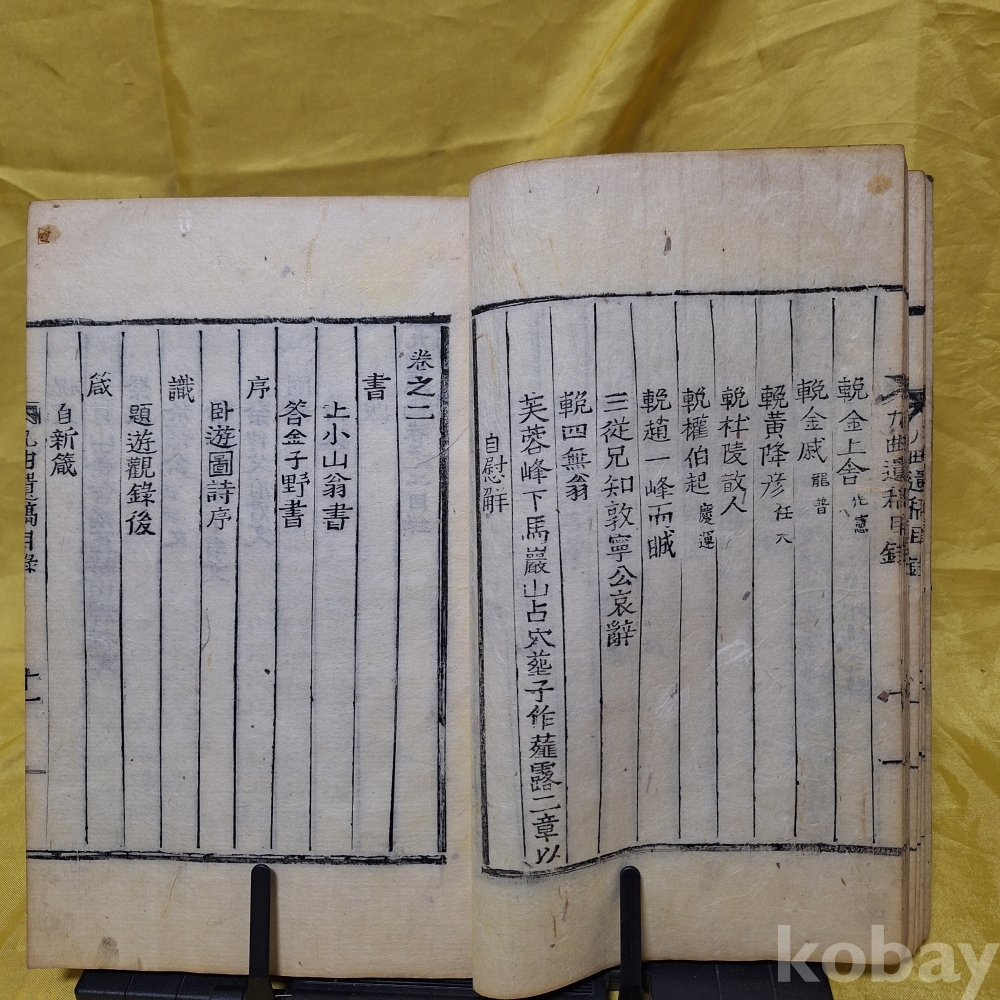 九曲遺稿目錄
一
輓金上舍
輓金戚 龍普
輓黃降彦 任大
輓梓陵故人
輓權伯起 慶運
輓趙一峰而晠
三從兄知敦寧公哀辭
輓四無翁
芙蓉峰下馬巖山占穴葬子作薤露二章以
自慰解
卷之二
書
上小山翁書
答金子野書
序
臥遊圖詩序
識
題遊觀錄後
箴
自新箴
九曲遺稿目錄
kobay